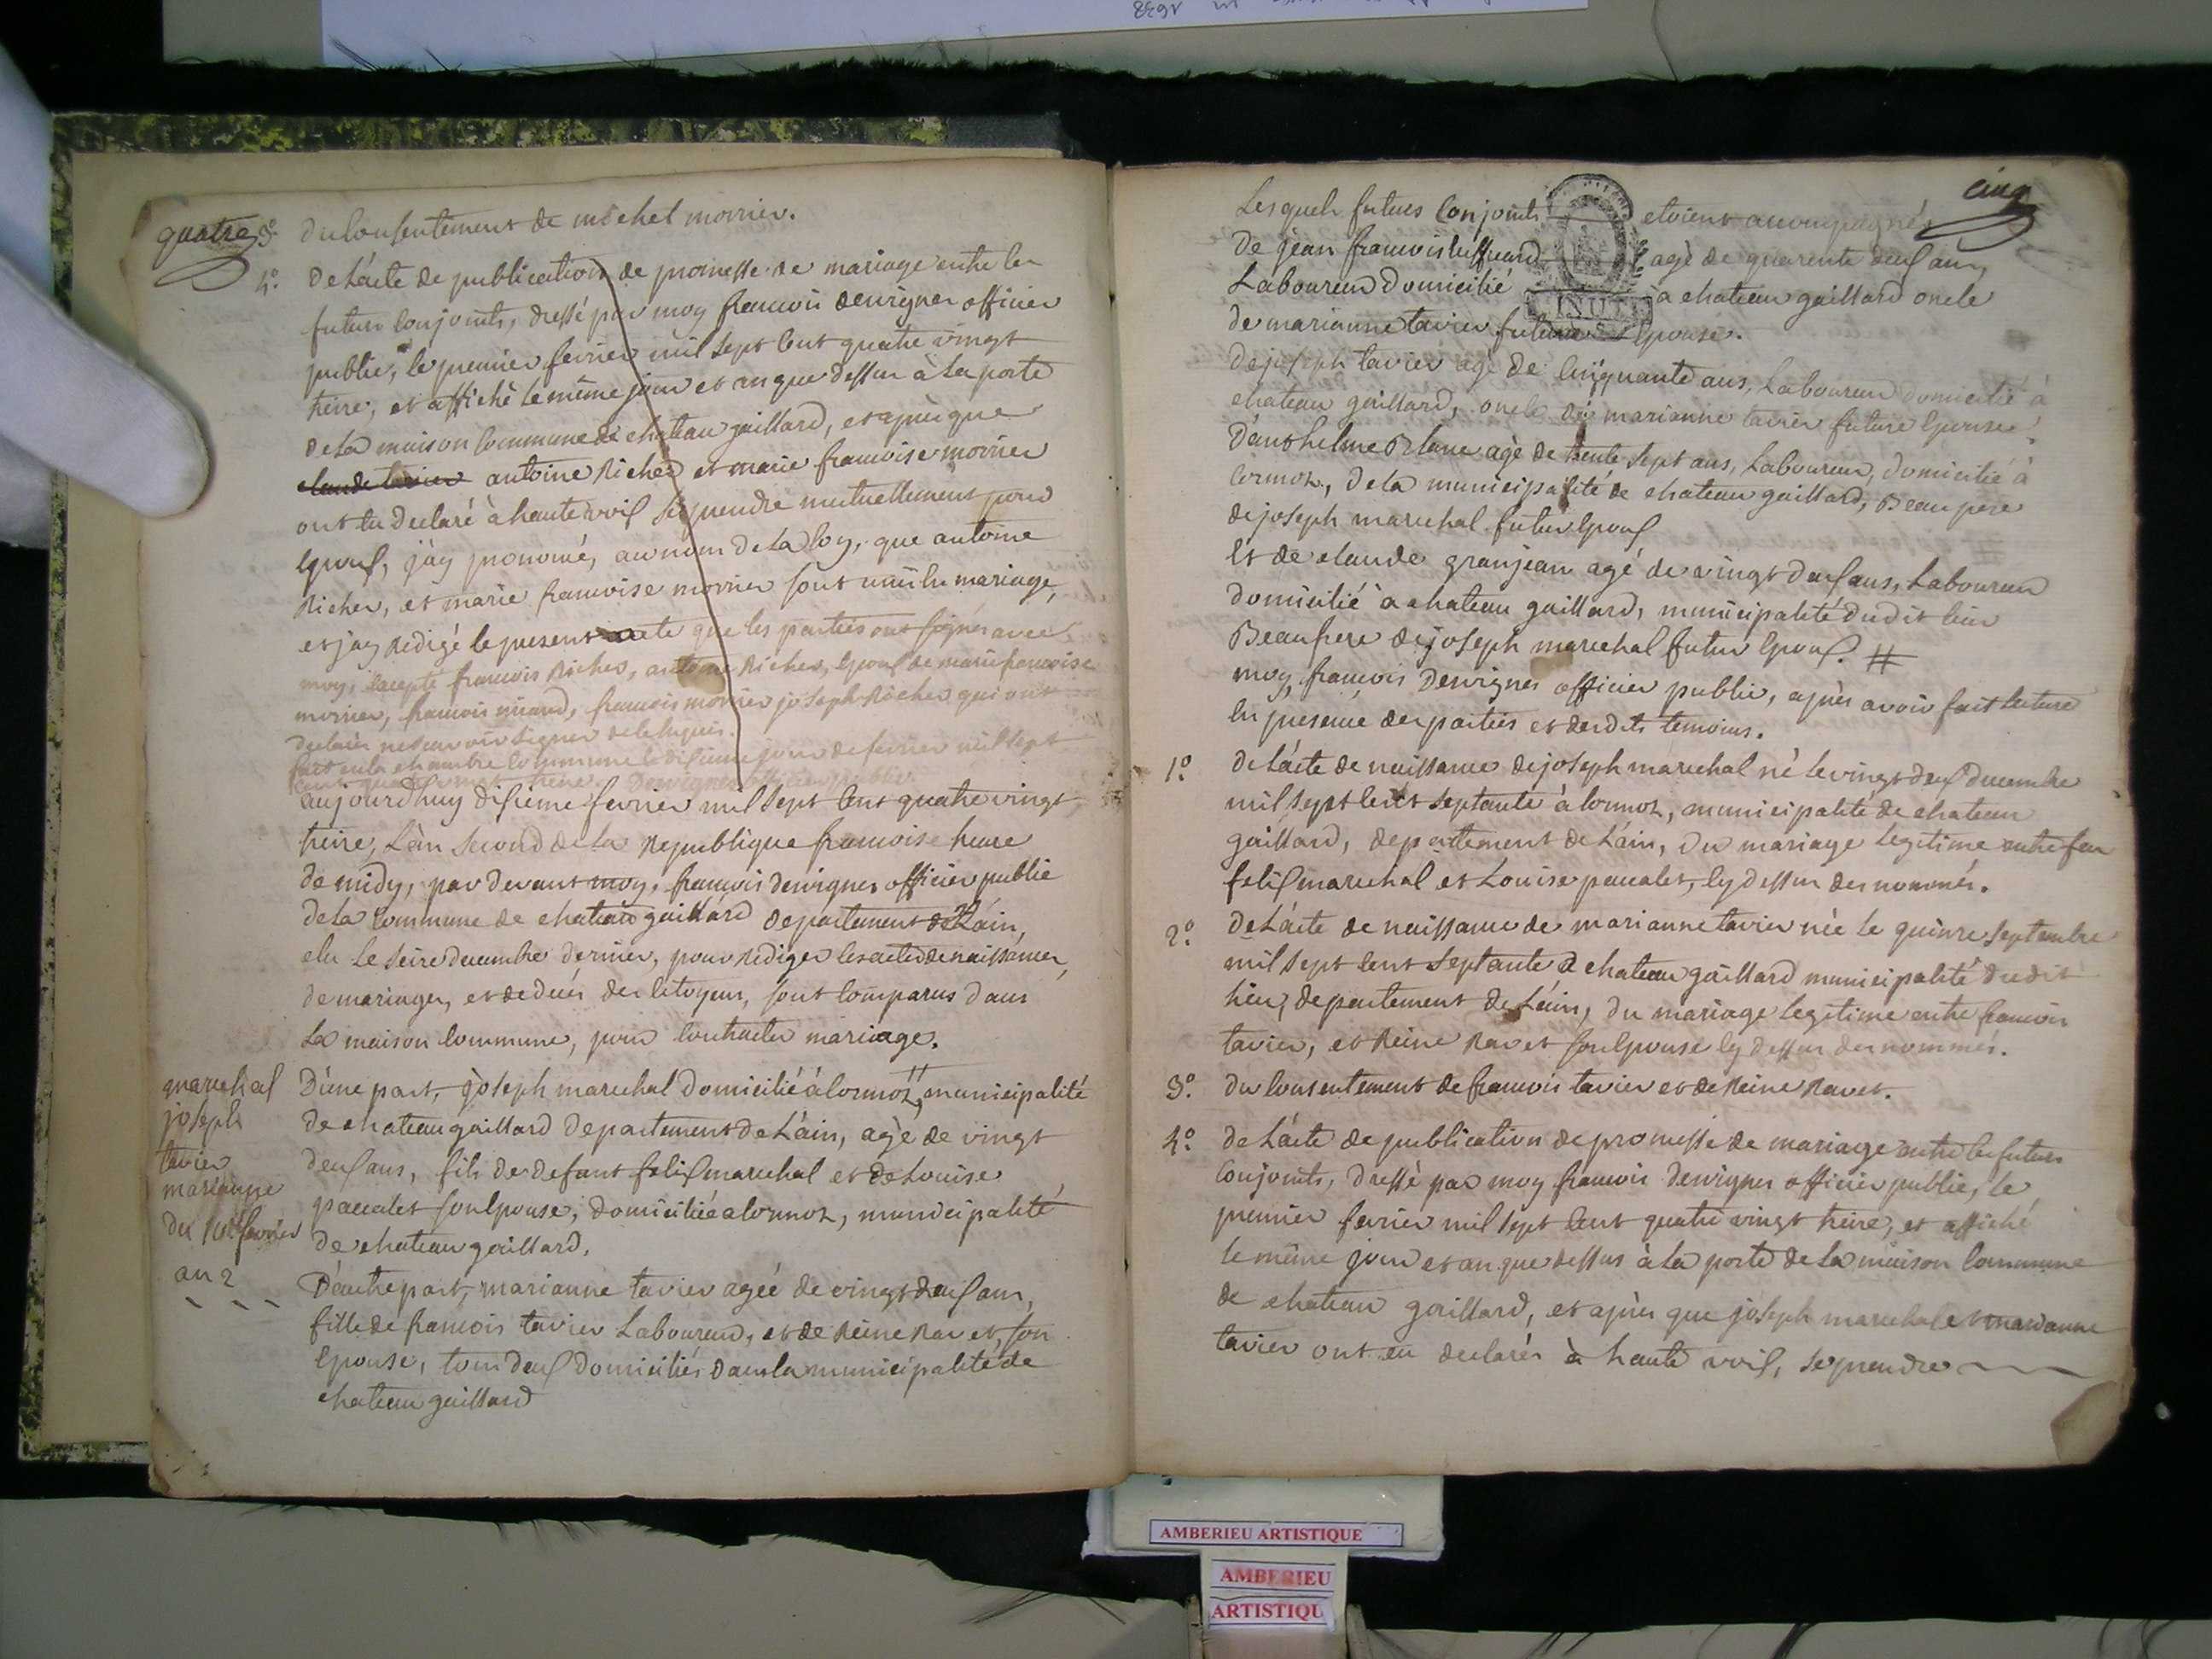 quatre
3.o du Consentement de michel morrier.
4.o de L'acte de publication de promesse de mariage entre les
futurs Conjoints, dressé par moy francois desvignes officier
public, le premier fevrier mil sept Cent quatre vingt
treize, et affiché le même jour et an que dessus à la porte
de la maison Commune de chateau gaillard, et après que
claude tavier antoine Richer et marie francoise morrier
ont eu declaré à haute voix se prendre mutuellement pour
Epoux, j'ay prononcé, au nom de La loy, que antoine
Richer, et marie francoise morrier sont unis En mariage,
et j'ay Redigé le present acte que les parties ont signés avec
moy, Excepté francois Richer, antoine Richer, Epoux de marie francoise
morrier, francois , francois morrier joseph Richer qui ont
declarés ne scavoir signer de ce Requis.
fait en la chambre Commune le dixieme jour de fevrier mil sept
Cent quatre vingt treize. Desvignes officier public
aujourd'huy dixieme fevrier mil sept Cent quatre vingt
treize, L'an second de La Republique francoise heure
de midy, par devant moy, francois desvignes officier public
de La Commune de chateau gaillard departement de L'ain,
elu Le seize decembre dernier, pour Rediger les actes de naissances,
de mariages, et de décès des Citoyens, sont Comparus dans
La maison Commune, pour Contracter mariage.
marechal
joseph
tavier
marianne
du 10 fevrier
an 2
D'une part, joseph marechal domicilié à Cormoz, municipalité
de chateau gaillard departement de L'ain, agè de vingt
deux ans, fils de defunt felix marechal et de Louise
pacalet son Epouse, domiciliée a Cormoz, municipalité
de chateau gaillard,
D'autre part, marianne tavier agée de vingt deux ans,
fille de francois tavier Laboureur, et de Reine Ravet, son
Epouse, tous deux domiciliés dans la municipalité de
chateau gaillard
cinq
Lesquels futurs Conjoints etoient accompagnés
De jean francois agè de quarente deux ans,
Laboureur domicilié à chateau gaillard oncle
de marianne tavier future Epouse.
De joseph tavier agé de Cinquante ans, Laboureur domicilié à
chateau gaillard, oncle de marianne tavier future Epouse.
D'anthelme Blanc agè de trente sept ans, Laboureur, domicilié à
Cormoz, de La municipalité de chateau gaillard, Beau pere
de joseph marechal futur Epoux
Et de claude granjean agé de vingt deux ans, Laboureur
domicilié à chateau gaillard, municipalité dudit lieu
Beau frere de joseph marechal futur Epoux. #
moy, francois Desvignes officier public, après avoir fait lecture
En presence des parties et desdits temoins.
1.o de L'acte de naissance de joseph marechal né le vingt deux decembre
mil sept Cent septante à Cormoz, municipalité de chateau
gaillard, departement de L'ain, du mariage Legitime entre feu
felix marechal et Louise pacalet, Cy dessus denommés.
2.o de L'acte de naissance de marianne tavier née le quinze septembre
mil sept Cent septante à chateau gaillard municipalité dudit
lieu, departement de L'ain, du mariage Legitime entre francois
tavier, et Reine Ravet son Epouse Cy dessus denommés.
3.o du Consentement de francois tavier et de Reine Ravet.
4.o de L'acte de publication de promesse de mariage entre les futurs
Conjoints, dressè par moy francois desvignes officier public, le
premier fevrier mil sept Cent quatre vingt treize, et affiché
le même jour et an que dessus à La porte de La maison Commune
de chateau gaillard, et après que joseph marechal et marianne
tavier ont eu declarés à haute voix, se prendre
AMBERIEU ARTISTIQUE
AMBERIEU
ARTISTIQU